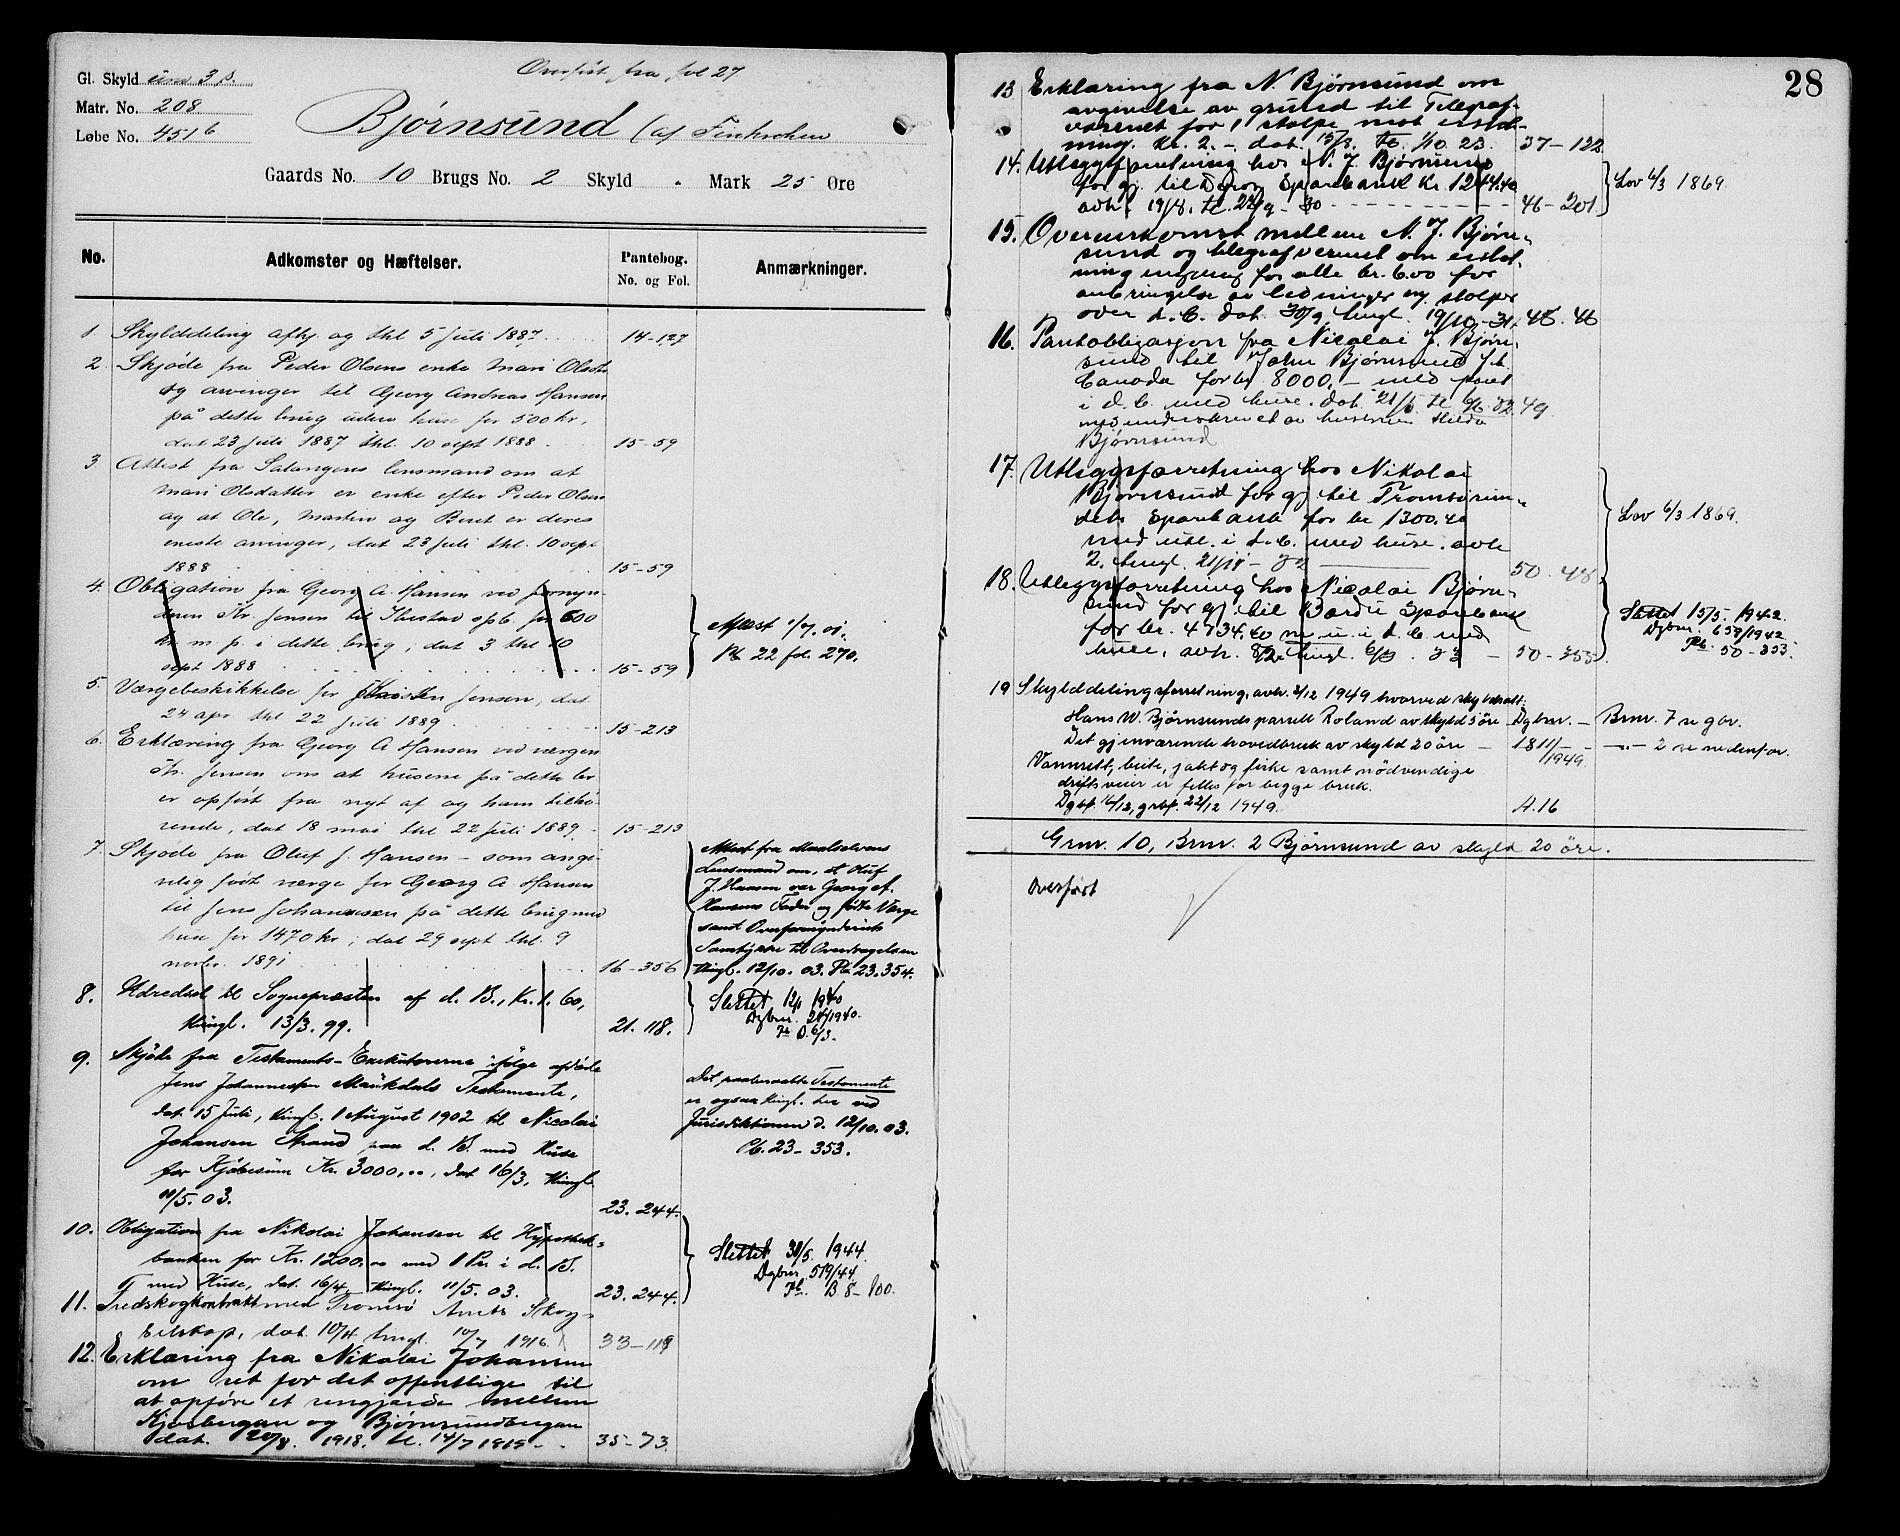 Overført fra fol 27
Gl. Skyld 3 s.
Matr. No. 208
Løbe No. 451 b
Bjørnsund (af
Gaards No. 10 Brugs No. 2 Skyld . Mark 25 Øre
No. Adkomster og Hæftelser. Pantebog. No. og Fol. Anmærkninger.
1. Skylddeling afhj. og thl 5 Juli 1887 14-127
2. Skjøde fra Peder Olsens enke Mari Olsdtr
og arvinger til Georg Andreas Hansen
på dette brug uden huse for 500 kr,
dat 23 Juli 1887 thl. 10 sept 1888 15-59
3. Attest fra Salangens lensmand om at
Mari Olsdatter er enke efter Peder Olsen
og at Ole, Martin og Beret er deres
eneste arvinger, dat 23 Juli thl. 10 sept
1888 15-59
4. Obligation fra Georg A. Hansen ved formyn-
deren Kr. Jensen til Ibestad opb. for 600
kr m. p. i dette brug, dat 3 thl 10
sept 1888 15-59
Aflæst 1/7. 01.
Pb 22 fol. 270.
5. Værgebeskikkelse for Jensen, dat
24 apr thl 22 Juli 1889 15-213
6. Erklæring fra Georg A Hansen ved værgen
Kr. Jensen om at husene på dette br
er opført fra nyt af og ham tilhø-
rende, dat 18 mai thl 22 Juli 1889 15-213
7. Skjøde fra Oluf J. Hansen - som angi-
velig født værge for Georg A Hansen
til Jens Johannesen på dette brug med
huse for 1470 kr, dat 29 sept thl. 9
novbr. 1891 16-356
Attest fra Maalselvens
Lensmand om, at Oluf
J. Hansen var Georg A.
Hansens Fader og fødte Værge
samt Overformynderiets
Samtykke til Overdragelsen
thingl. 12/10. 03. Pb. 23. 354.
8. Udredsel til Sognepræsten af d. B., Kr. 1. 60,
thingl. 13/3. 99. 21. 118.
Slettet 12/1 1940
Dgbnr. 1940.
9. Skjøde fra Testaments-Exekutorerne ifølge afdøde
Jens Johannessen Maukdals Testamente,
dat. 15 Juli, thingl. 1 August 1902 til Nicolai
Johansen Strand paa d. B. med Huse
for Kjøbesum Kr. 3000,00, dat 16/3, thingl.
11/5. 03. 23. 244.
Det paaberaabte Testamente
er ogsaa thingl. her ved
Jurisdiktionen d. 12/10. 03.
Pb. 23 - 353.
10. Obligation fra Nikolai Johansen til Hypothek-
banken for Kr. 1200.00 med 1 Pr. i d. B.
med Huse, dat. 16/4, thingl. 11/5. 03. 23. 244.
Slettet 30/5. 1944.
Dgbnr. 519/44.
Pb. B 8 - 100.
11. Fredskogkontrakt med Tromsø Amts Skog-
selskap, dat. 10/4 tingl. 10/7 1916. 33-119
12. Erklæring fra Nikolai Johansen
om ret for det offentlige til
at opføre et rengjærde mellem
Kjosbergan og Bjørnsundbergan
dat. 20/8. 1918. tl. 14/7 1919 35-73.
28
13 Erklæring fra N. Bjørnsund om
avgivelse av grund til Telegraf-
væsenet for 1 stolpe mot erstat-
ning. kr. 2.-, dat. 15/8. tl. 1/10. 23. 37-122
14. Utlegsforretning hos N. J. Bjørnsund
for gj. til Sparebank kr. 1244.40
avh. 19/8. tl. 22/9 - 30 46-201
Lov 6/3 1869.
15. Overenskomst mellem N. J. Bjørn-
sund og telegrafverket om erstat-
ning engang for alle kr. 6.00 for
anbringelse av ledninger og stolper
over d. b. dat. 30/9 tingl. 19/10-31. 48. 46
16. Pantobligasjon fra Nicolai J. Bjørn-
sund til John Bjørnsund f.t.
Canada for kr 8000,- med pant
i d. b. med huse. dat. 21/5 tl. 9/6. 32. 49
medunderskrevet av hustruen Hilda
Bjørnsund
17. Utlegsforretning hos Nikolai
Bjørnsund for gj. til Tromsøsun-
dets Sparebank for kr 1300.40
med utl. i d. b. med huse. avh
2. tingl. 21/11 - 32 50. 48.
Lov 6/3 1869.
18. Utlegsforretning hos Nicolai Bjørn-
sund for gj. til Bardu Sparebank
for kr. 4734.60 m. u. i d. b. med
huse, avh. tingl. 6/3. 33 - 50-353
Slettet 15/5. 1942.
Dgbnr. 659/1942.
Pb. 50 - 353.
19 Skylddelingsforretning, avh. 2/12 1949 hvorved skyldsatt:
Hans W. Bjørnsunds parsell Roland av skyld 5 øre - Dgbnr. - Brnr. 7 se gbr.
Det gjenværende hovedbruk av skyld 20 øre - 1811/1949 - -"- 2 se nedenfor.
Vannrett, beite, jakt og fiske samt nødvendige
driftsveier er felles for begge bruk.
Dgbf. 16/12, grbf. 22/12 1949. A. 16
Grnr. 10, Brnr. 2 Bjørnsund av skyld 20 øre.
Overført